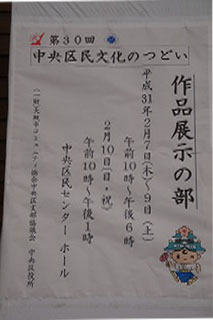 第30回
中央区民文化のつどい
作品展示の部
平成31年2月7日(木)～9日(土)
午前10時～午後6時
2月10日(日・祝)
午前10時～午後1時
中央区民センター ホール
(一財)大阪市コミュニティ協会中央区支部協議会 中央区役所